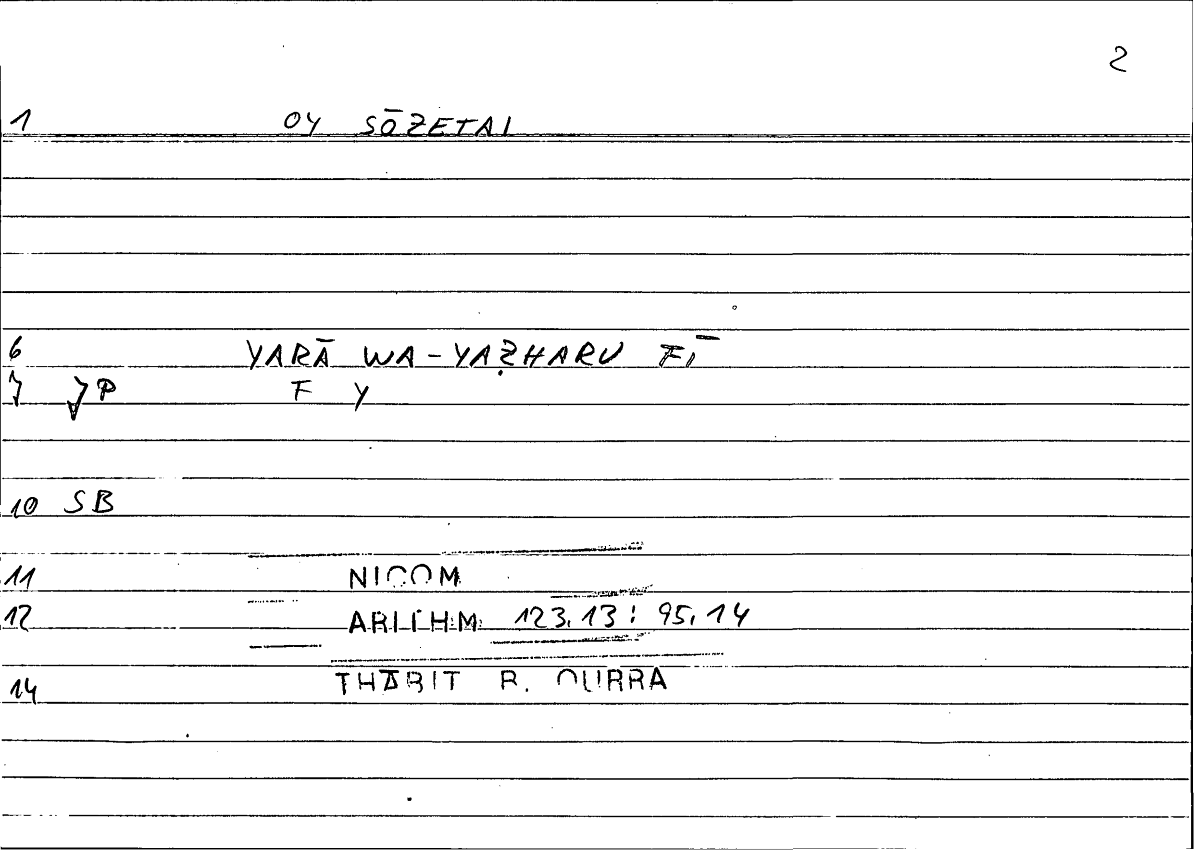 2
1 OY SŌZETAI
6 YARĀ WA-YAẒHARU FĪ
7 JP F Y
10 SB
11 NICOM
12 ARITHM 123.13 : 95.14
14 THĀBIT B. QURRA